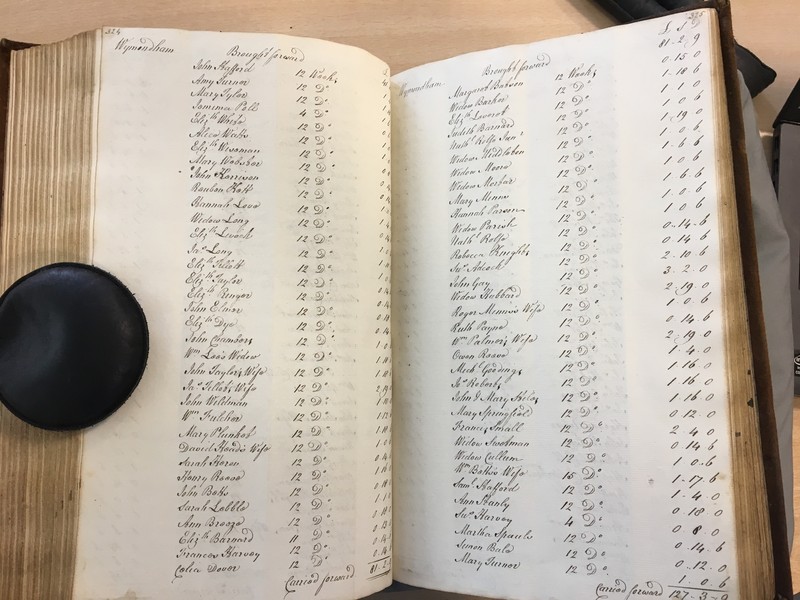 324
Wymondham Brought forward
John Stafford 12 Weeks
Amy Turner 12 Do
Mary Tylor 12 Do
Jamima Poll 4 Do
Elizth White 12 Do
Alice Watts 12 Do
Elizth Wiseman 12 Do
Mary Webster 12 Do
John Harrison 12 Do
Reuben Hatt 12 Do
Hannah Love 12 Do
Widow Long 12 Do
Elizth Leveck 12 Do
Jas Long 12 Do
Elizth Tillett 12 Do
Elizth Taylor 12 Do
Elizth Ringer 12 Do
John Elmer 12 Do
Elizth Dye 12 Do
John Cummons 12 Do
Wm Lois Widow 12 Do
John Taylors Wife 12 Do
Jas Tillets Wife 12 Do
John Wildman 12 Do
Wm Fulcher 12 Do
Mary Plunket 12 Do
David Heads Wife 12 Do
Sarah Horne 12 Do
Henry Reeve 12 Do
John Botts 12 Do
Sarah Lebble 12 Do
Ann Breeze 12 Do
Elizth Barnard 11 Do
Frances Harvey 12 Do
Celia Dover 12 Do
Carried forward 81 2
325
£ S D
Wymondham Brought forward 81 - 2 - 9
Margaret Babson 12 Weeks 0 - 15 - 0
Widow Barker 12 Do 1 - 18 - 6
Elizth Leveret 12 Do 1 - 1 - 0
Judith Barnard 12 Do 1 - 0 - 6
12 Do 1 - 19 - 0
Widow Middleton 12 Do 1 - 6 - 6
Widow Moore 12 Do 1 - 0 - 6
Widow 12 Do 1 - 6 - 6
Mary Minns 12 Do 1 - 0 - 6
Hannah Parson 12 Do 1 - 0 - 6
Widow Parish 12 Do 0 - 14 - 6
Ruth Rolfe 12 Do 0 - 14 - 6
Rebecca 12 Do 2 - 10 - 6
Sus Adcock 12 Do 3 - 2 - 0
John Gay 12 Do 2 - 19 - 0
Widow Hubbard 12 Do 1 - 0 - 6
Roger Minnis Wife 12 Do 0 - 14 - 6
Ruth Payne 12 Do 2 - 19 - 0
Wm Palmers Wife 12 Do 1 - 4 - 0
Owen Reeve 12 Do 1 - 16 - 0
Mech Goodings 12 Do 1 - 16 - 0
Jos Roberts 12 Do 1 - 16 - 0
John & Mary 12 Do 0 - 12 - 0
Mary Springfield 12 Do 2 - 4 - 0
Francis Small 12 Do 0 - 14 - 6
Widow Sweetman 12 Do 1 - 0 - 6
Widow Cullum 12 Do 1 - 17 - 6
Wm Botts's Wife 15 Do 1 - 4 - 0
Saml Stafford 12 Do 0 - 18 - 0
Ann Stanly 12 Do 0 - 8 - 0
Sus Harvey 4 Do 0 - 14 - 6
Martha Spauls 12 Do 0 - 12 - 0
Simon Bale 12 Do 1 - 0 - 6
Mary Turner 12 Do
Carried forward 127 - 3 - 9